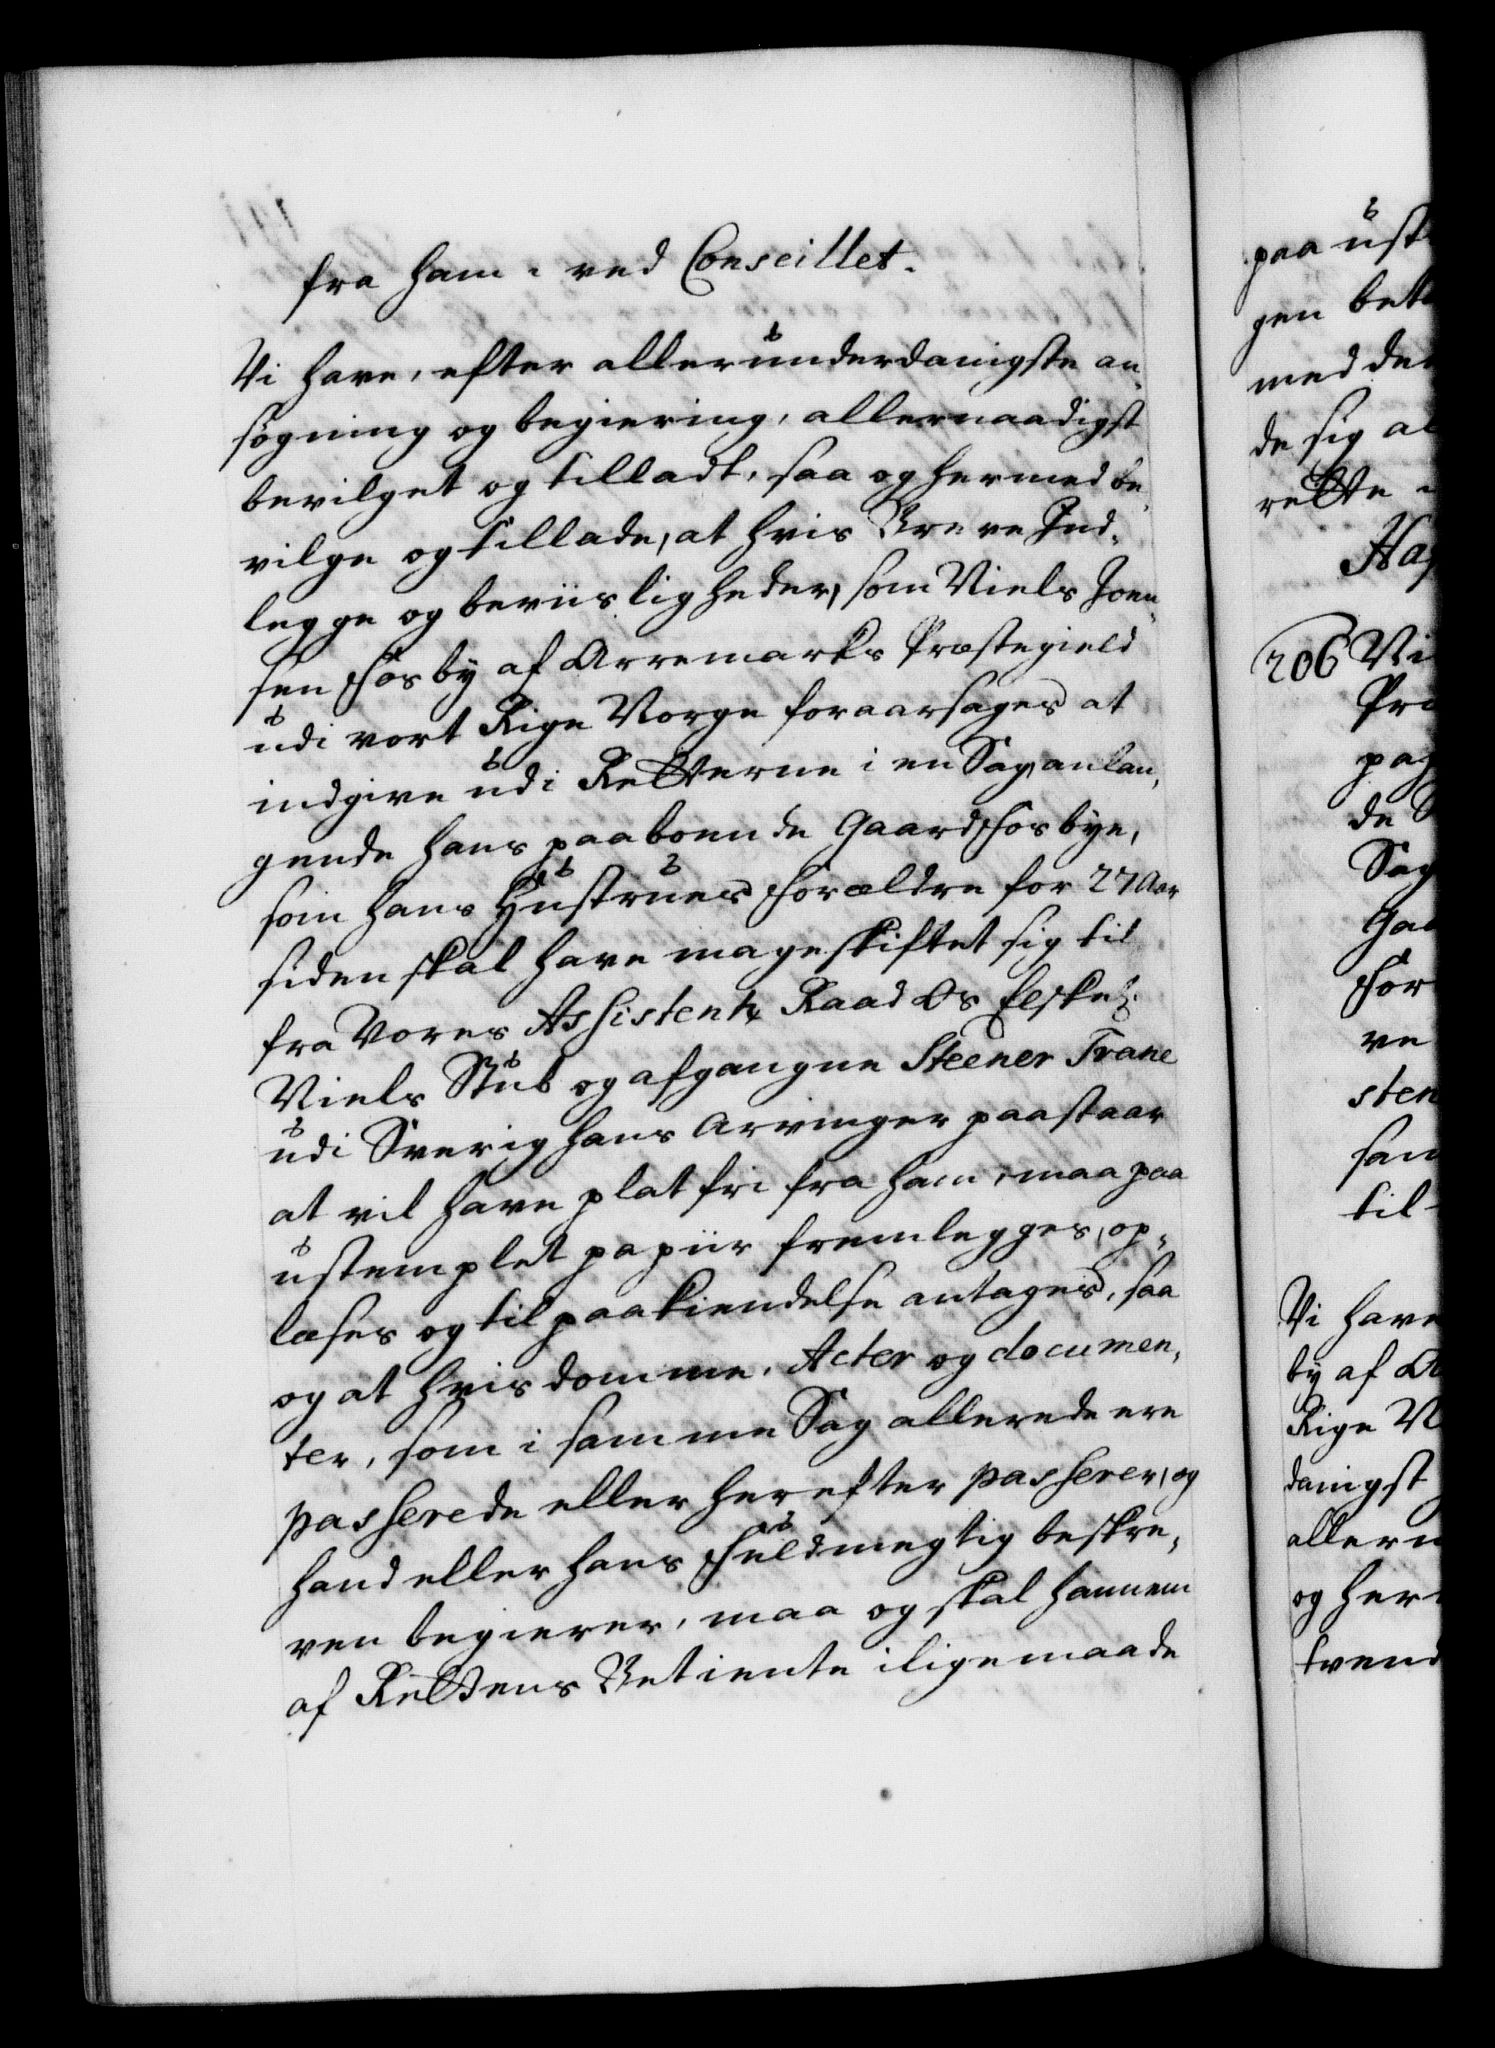 fra ham i ved Conseillet.
Vi have, efter allerunderdanigste an„
søgning og begiering, allernaadigst
bevilget og tilladt, saa og hermed be„
vilge og tillade, at hvis Breve Ind„
legge og beviisligheder, som Niels Joen„
sen Fosby af Arremarks Præstegield
udi vort Rige Norge foraarsages at
indgive udi Retterne i en Sag anlan„
gende hans paaboende Gaard Fosbye,
som hans Hustrues Forældre for 27 Aar
siden skal have mageskiftet sig til
fra Vores Assistentz Raad Os Elskel:
Niels Stub og afgangne Steener Trane
udi Sverig hans Arvinger paastaar
at vil have plat fri fra ham, maa paa
ustemplet papiir fremlegges, op„
læses og til paakiendelse antages, saa
og at hvis domme, Acter og documen„
ter, som i samme Sag allerede ere
passerede eller herefter passerer, og
hand eller hans Fuldmegtig beskre„
ven begierer, maa og skal hannem
af Rettens Betiente iligemaade
paa ust
gen bett
med de
de sig al
rette
206 Vi
Pr
pa
de S
Sag
Ga
For
ve
sten
sam
til
Vi have
by af A
Rige N
danigst
allern
og her
tvend